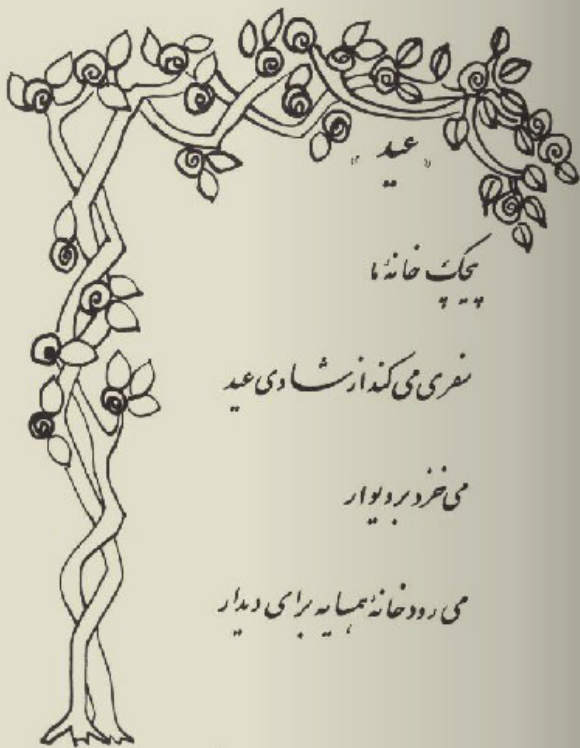 « عید »
پیچک خانهٔ ما
سفری می کند از شادی عید
می خزد بر دیوار
می رود خانهٔ همسایه برای دیدار